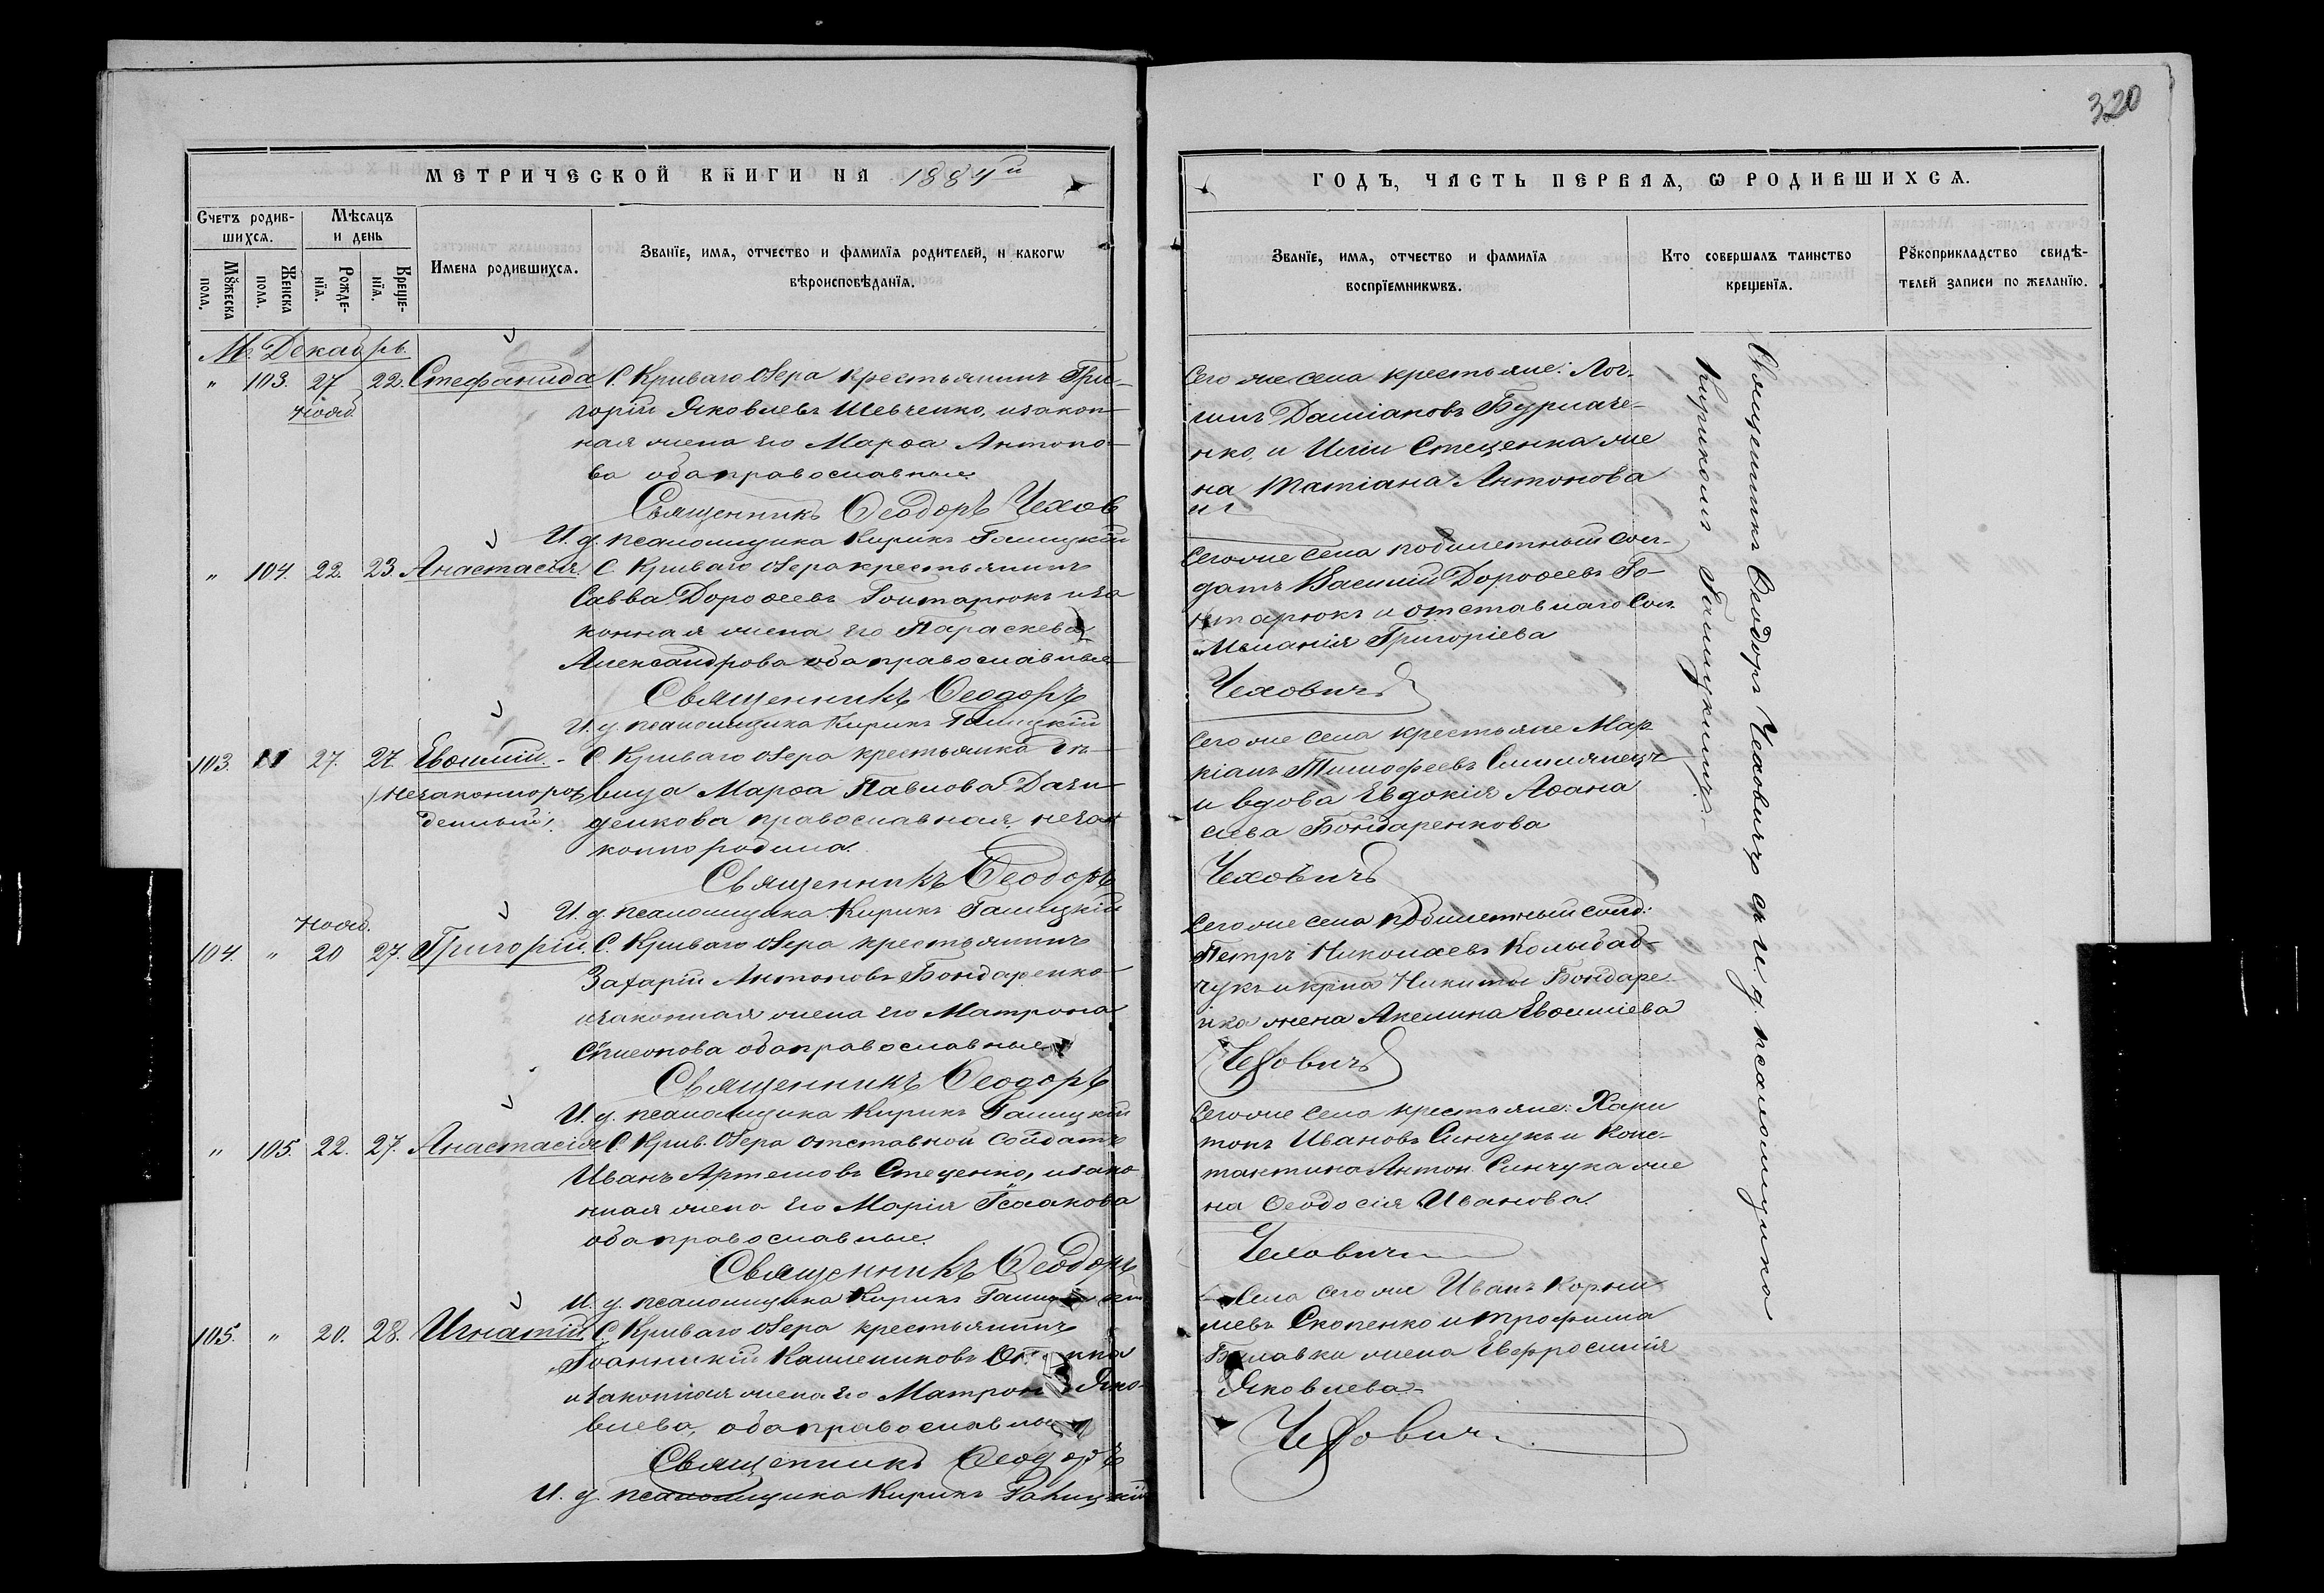 320
МЕТРИЧЕСКОЙ КНИГИ НА 1884й
ГОДЪ, ЧАСТЬ ПЕРВАЯ, Ѡ РОДИВШИХСѦ.
Счетъ родив-
шихсѧ.
Мѣсѧцъ
и день
Мꙋжеска
пола.
Женска
пола.
Рожде-
нїѧ.
Креще-
нїѧ.
Имена родившихсѧ.
Званїе, имѧ, отчество и фамилїѧ родителей, и какогѡ
вѣроисповѣданїѧ.
Званїе, имѧ, отчество и фамилїѧ
воспрїемникѡвъ.
Кто совершалъ таинство
крещенїѧ.
Рꙋкоприкладство свидѣ-
телей записи по желанїю.
М. Декабрь.
" 103. 27 нояб 22. Стефанида
С. Криваго Озера крестьянинъ Гри-
горій Яковлевъ Шевченко, и закон-
ная жена его Марѳа Антоно-
ва оба православные.
Священникъ Ѳеодоръ Чехов
И. д. псаломщика Кирикъ Галицкій
Сего же села крестьяне: Лог-
гинъ Даміановъ Бурлаче-
нко, и Иліи Стеценка же
на Татіана Антонова
" 104. 22. 23. Анастасія.
С. Криваго Озера крестьянинъ
Савва Дороѳеевъ Гонтарюкъ и за
конная жена его Параскева
Александрова оба православные
Священникъ Ѳеодоръ
И. д. псаломщика Кирикъ Галицкій
Сего же села побилетный сол-
датъ Василій Дороѳеевъ Го-
нтарюкъ и отставнаго Сол.
Меланія Григоріева
Чеховичъ
103. " 27. 27. Евѳимій. -
(незаконнорож
денный).
С. Криваго Озера крестьянка дѣ-
вица Марѳа Павлова
православная неза
конно родила.
Священникъ Ѳеодоръ
И. д. псаломщика Кирикъ Галицкій
Сего же села крестьяне Мар
кіанъ Тимофеевъ
и вдова Евдокія Аѳана
сіева Бондаренкова
Чеховичъ
104. " нояб. 20 27. Григорій.
С. Криваго Озера крестьянинъ
Захарій Антоновъ Бондаренко
и законная жена его Матрона
Сѵмеонова оба православные
Священникъ Ѳеодоръ
И. д. псаломщика Кирикъ Галицкій
Сего же села побилетный солд:
Петръ Николаевъ
чукъ и кр-на Никиты Бондаре-
нка жена Акелина Евѳиміева
Чеховичъ
" 105. 22. 27. Анастасія
С. Крив. Озера отставной солдатъ
Иванъ Артемовъ Стеценко, и зако
нная жена его Марія Ісаакова
оба православные.
Священникъ Ѳеодоръ
И. д. псаломщика Кирикъ
Сего же села крестьяне: Хари
тонъ Ивановъ Синчукъ и Конс-
тантина Антон. Синчука же
на Ѳеодосія Иванова.
Чеховичъ
105. " 20. 28. Игнатій
С. Криваго Озера крестьянинъ
Іоанникій
и законная жена его Матрона Яко-
влева, оба православные
Священникъ Ѳеодоръ
И. д. псаломщика Кирикъ Галицкій
Села сего же Иванъ Корни
лievъ Скопенко и Трофима
жена Евфросинія
Яковлева
Чеховичъ
Священникъ Ѳеодоръ Чеховичъ съ И. д. псаломщика
Кирикомъ Галицкимъ.